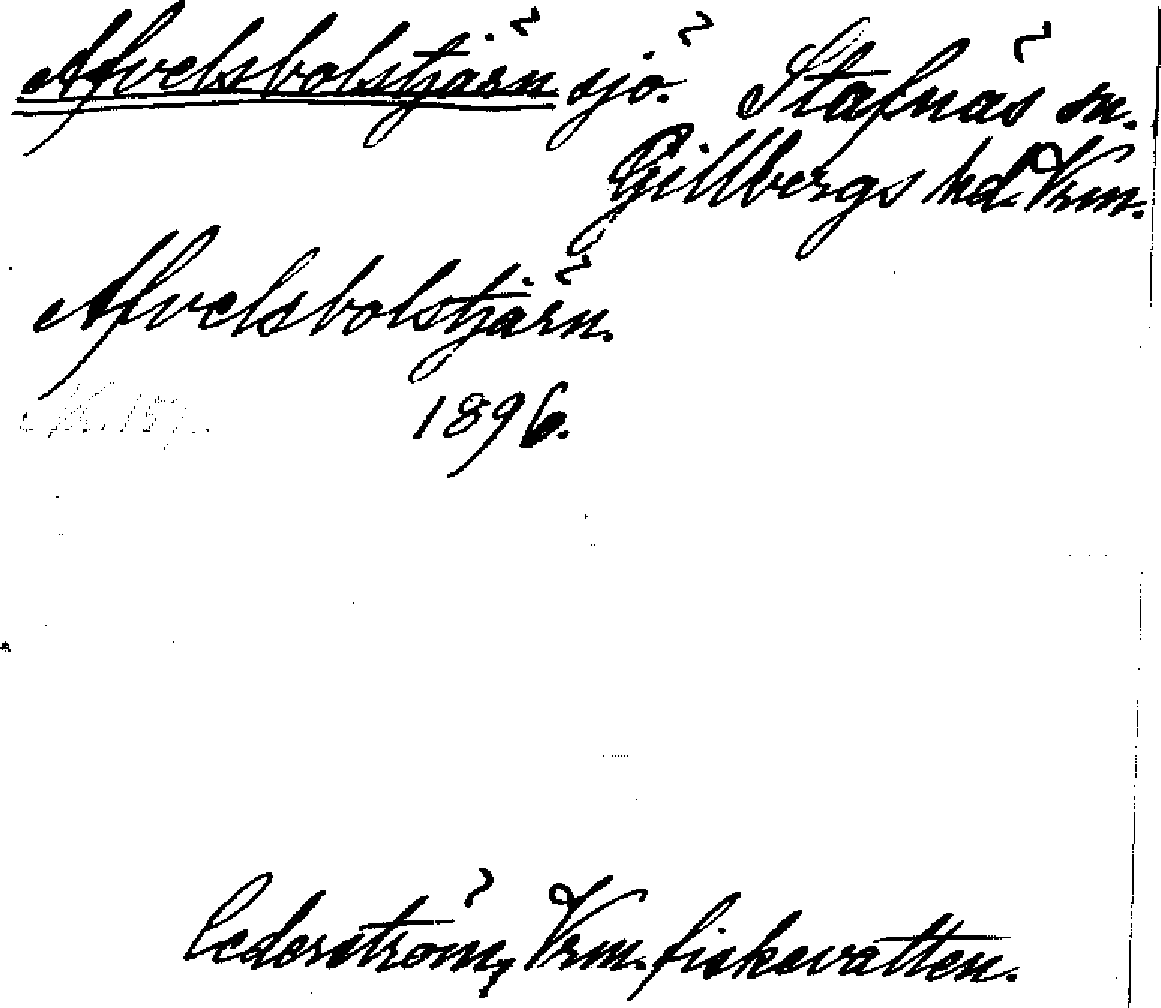 Afvelsbolstjärn sjö. Stafnäs sn.
Gillbergs hd. Vrm.
Afvelsbolstjärn.
1896.
Cederström, Vrm. fiskevatten.